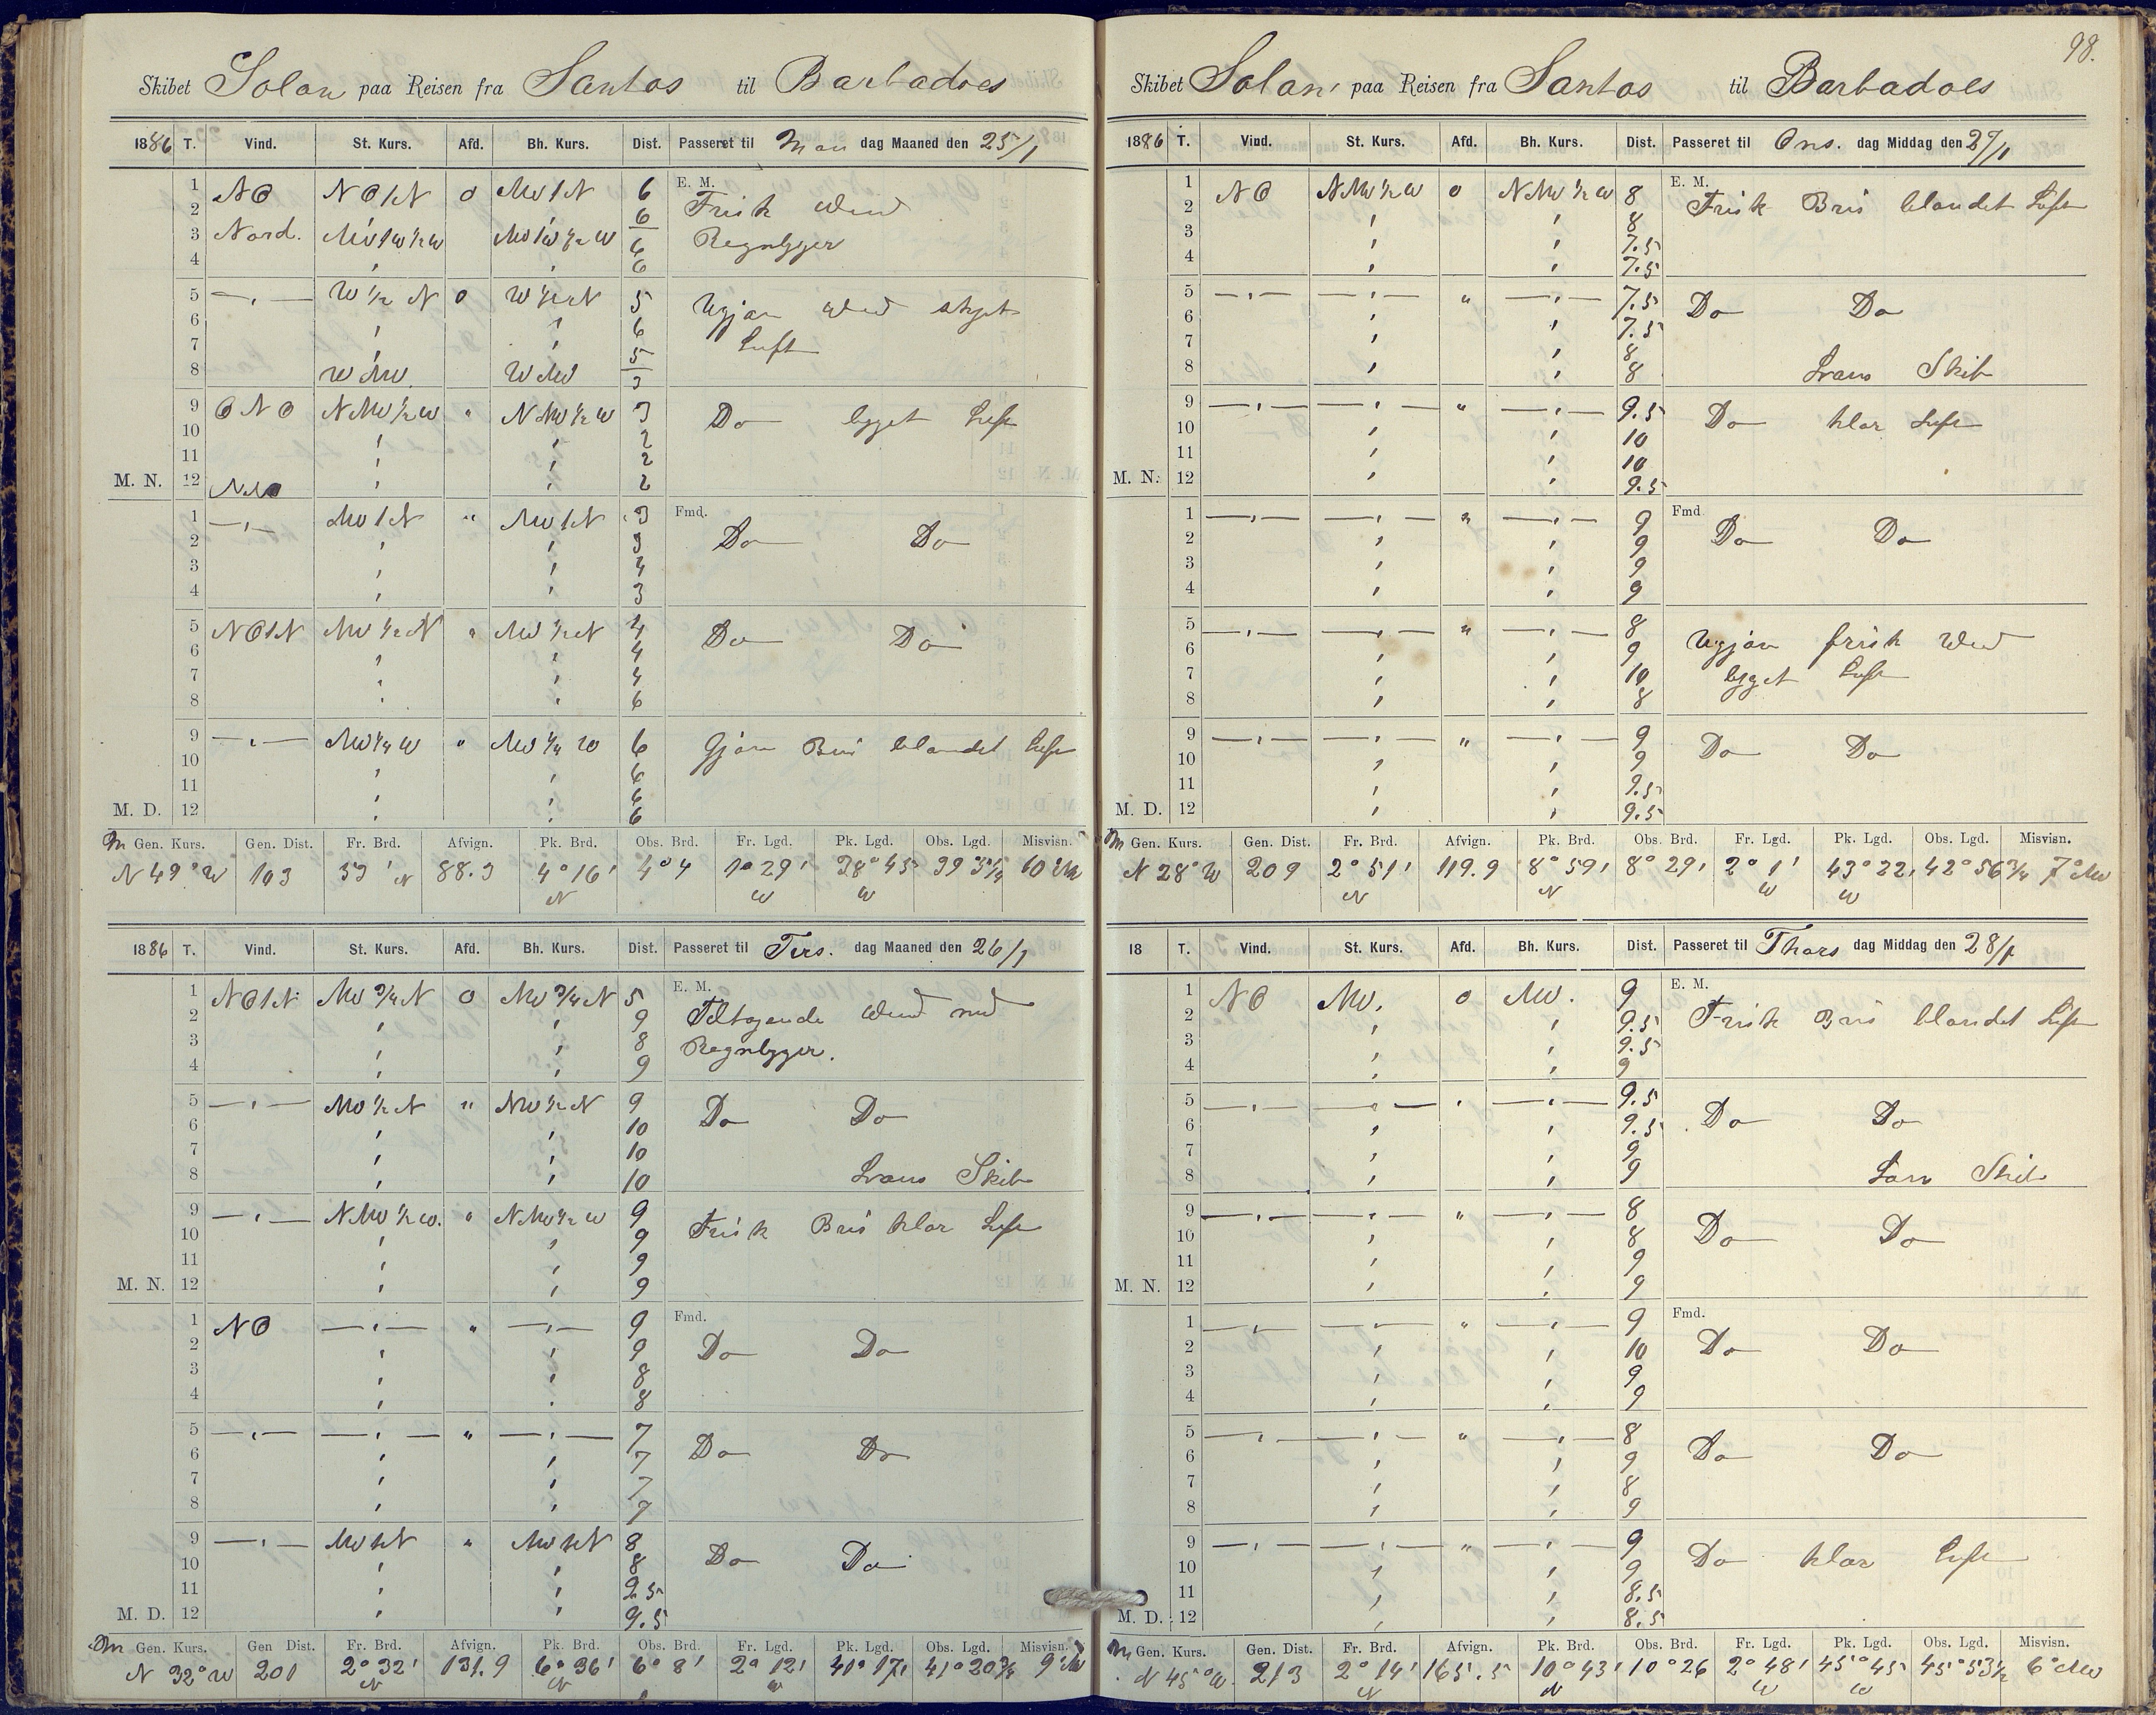 98.
Skibet Solon paa Reisen fra Santos til Barbadoes
1886 T. Vind. St. Kurs. Afd. Bh. Kurs. Dist. Passeret til Man dag Maaned den 25/1
1 NO NO1N O NW1N 6 E. M.
2 6 Frisk Vind
3 Nord. NW1W½W NW1W½W 6 Regnbyger
4 6
5 W½N O W½N 5
6 6
7 5 Luft
8 WNW. WNW 3
9 ONO NNW½W " NNW½W 3 Do bygget Luft
10 2
11 2
M. N. 12 2
1 NW1N " NW1N 3 Fmd.
2 3 Do Do
3 4
4 3
5 NO1N NW½N " NW½N 4
6 4 Do Do
7 4
8 6
9 NW¼W " NW¼W 6 Gjön Bris blandet Luft
10 6
11 6
M. D. 12 6
Gen. Kurs. Gen. Dist. Fr. Brd. Afvign. Pk. Brd. Obs. Brd. Fr. Lgd. Pk. Lgd. Obs. Lgd. Misvisn.
N 49° W 103 53' N 88.3 4° 16' N 4° 4 1° 29' W 38° 45 W
1886 T. Vind. St. Kurs. Afd. Bh. Kurs. Dist. Passeret til Tirs. dag Maaned den 26/1
1 NO1N NW¾N O NW¾N 5 E. M.
2 9 Tiltagende Vind med
3 8 Regnbyger.
4 9
5 NW½N " NW½N 9
6 10 Do Do
7 10
8 10 Lans Skib
9 NNW½W. " NNW½W 9
10 9 Frisk Bris klar Luft
11 9
M. N. 12 9
1 NO " 9 Fmd.
2 9 Do Do
3 8
4 8
5 " 7
6 7 Do Do
7 7
8 7
9 NW1N " NW1N 8
10 8 Do Do
11 9.5
M. D. 12 9.5
Gen. Kurs. Gen Dist. Fr. Brd. Afvign. Pk. Brd. Obs. Brd. Fr. Lgd. Pk. Lgd. Obs. Lgd. Misvisn.
N 32° W 201 2° 32' N 131.9 6° 36' N 6° 8' 2° 12' W 41° 17' 41° 20¾ 9° NW
Skibet Solon paa Reisen fra Santos til Barbadoes
1886 T. Vind. St. Kurs. Afd. Bh. Kurs. Dist. Passeret til Ons. dag Middag den 27/1
1 NO NNW½W O NNW½W 8 E. M.
2 8 Frisk Bris blandet Luft
3 7.5
4 7.5
5 " 7.5
6 7.5 Do Do
7 8
8 8 Lans Skib
9 " 9.5
10 10 Do klar Luft
11 10
M. N. 12 9.5
1 " 9 Fmd
2 9 Do Do
3 9
4 9
5 " 8
6 9 frisk Vind
7 10 bygget Luft
8 8
9 " 9
10 9 Do Do
11 9.5
M. D. 12 9.5
Gen. Kurs. Gen. Dist. Fr. Brd. Afvign. Pk. Brd. Obs. Brd. Fr. Lgd. Pk. Lgd. Obs. Lgd. Misvisn.
N 28° W 209 2° 51' N 119.9 8° 59' N 8° 29' 2° 1' W 43° 22' W 42° 56¾ 7° NW
18 T. Vind. St. Kurs. Afd. Bh. Kurs. Dist. Passeret til Thors dag Middag den 28/1
1 NO NW. O NW. 9 E. M.
2 9.5 Frisk Bris blandet Luft
3 9.5
4 9
5 9.5
6 9.5 Do Do
7 9
8 9 Lans Skib
9 " 8
10 8 Do Do
11 9
M. N. 12 9
1 " 9 Fmd.
2 10 Do Do
3 9
4 9
5 " 8
6 9 Do Do
7 8
8 9
9 " 9
10 9 Do klar Luft
11 8.5
M. D. 12 8.5
Gen. Kurs. Gen. Dist. Fr. Brd. Afvign. Pk. Brd. Obs. Brd. Fr. Lgd. Pk. Lgd. Obs. Lgd. Misvisn.
N 45° W. 213 2° 14' N 165.5 10° 43' N 10° 26 2° 48' W 45° 45 W 45° 53½ 6° NW